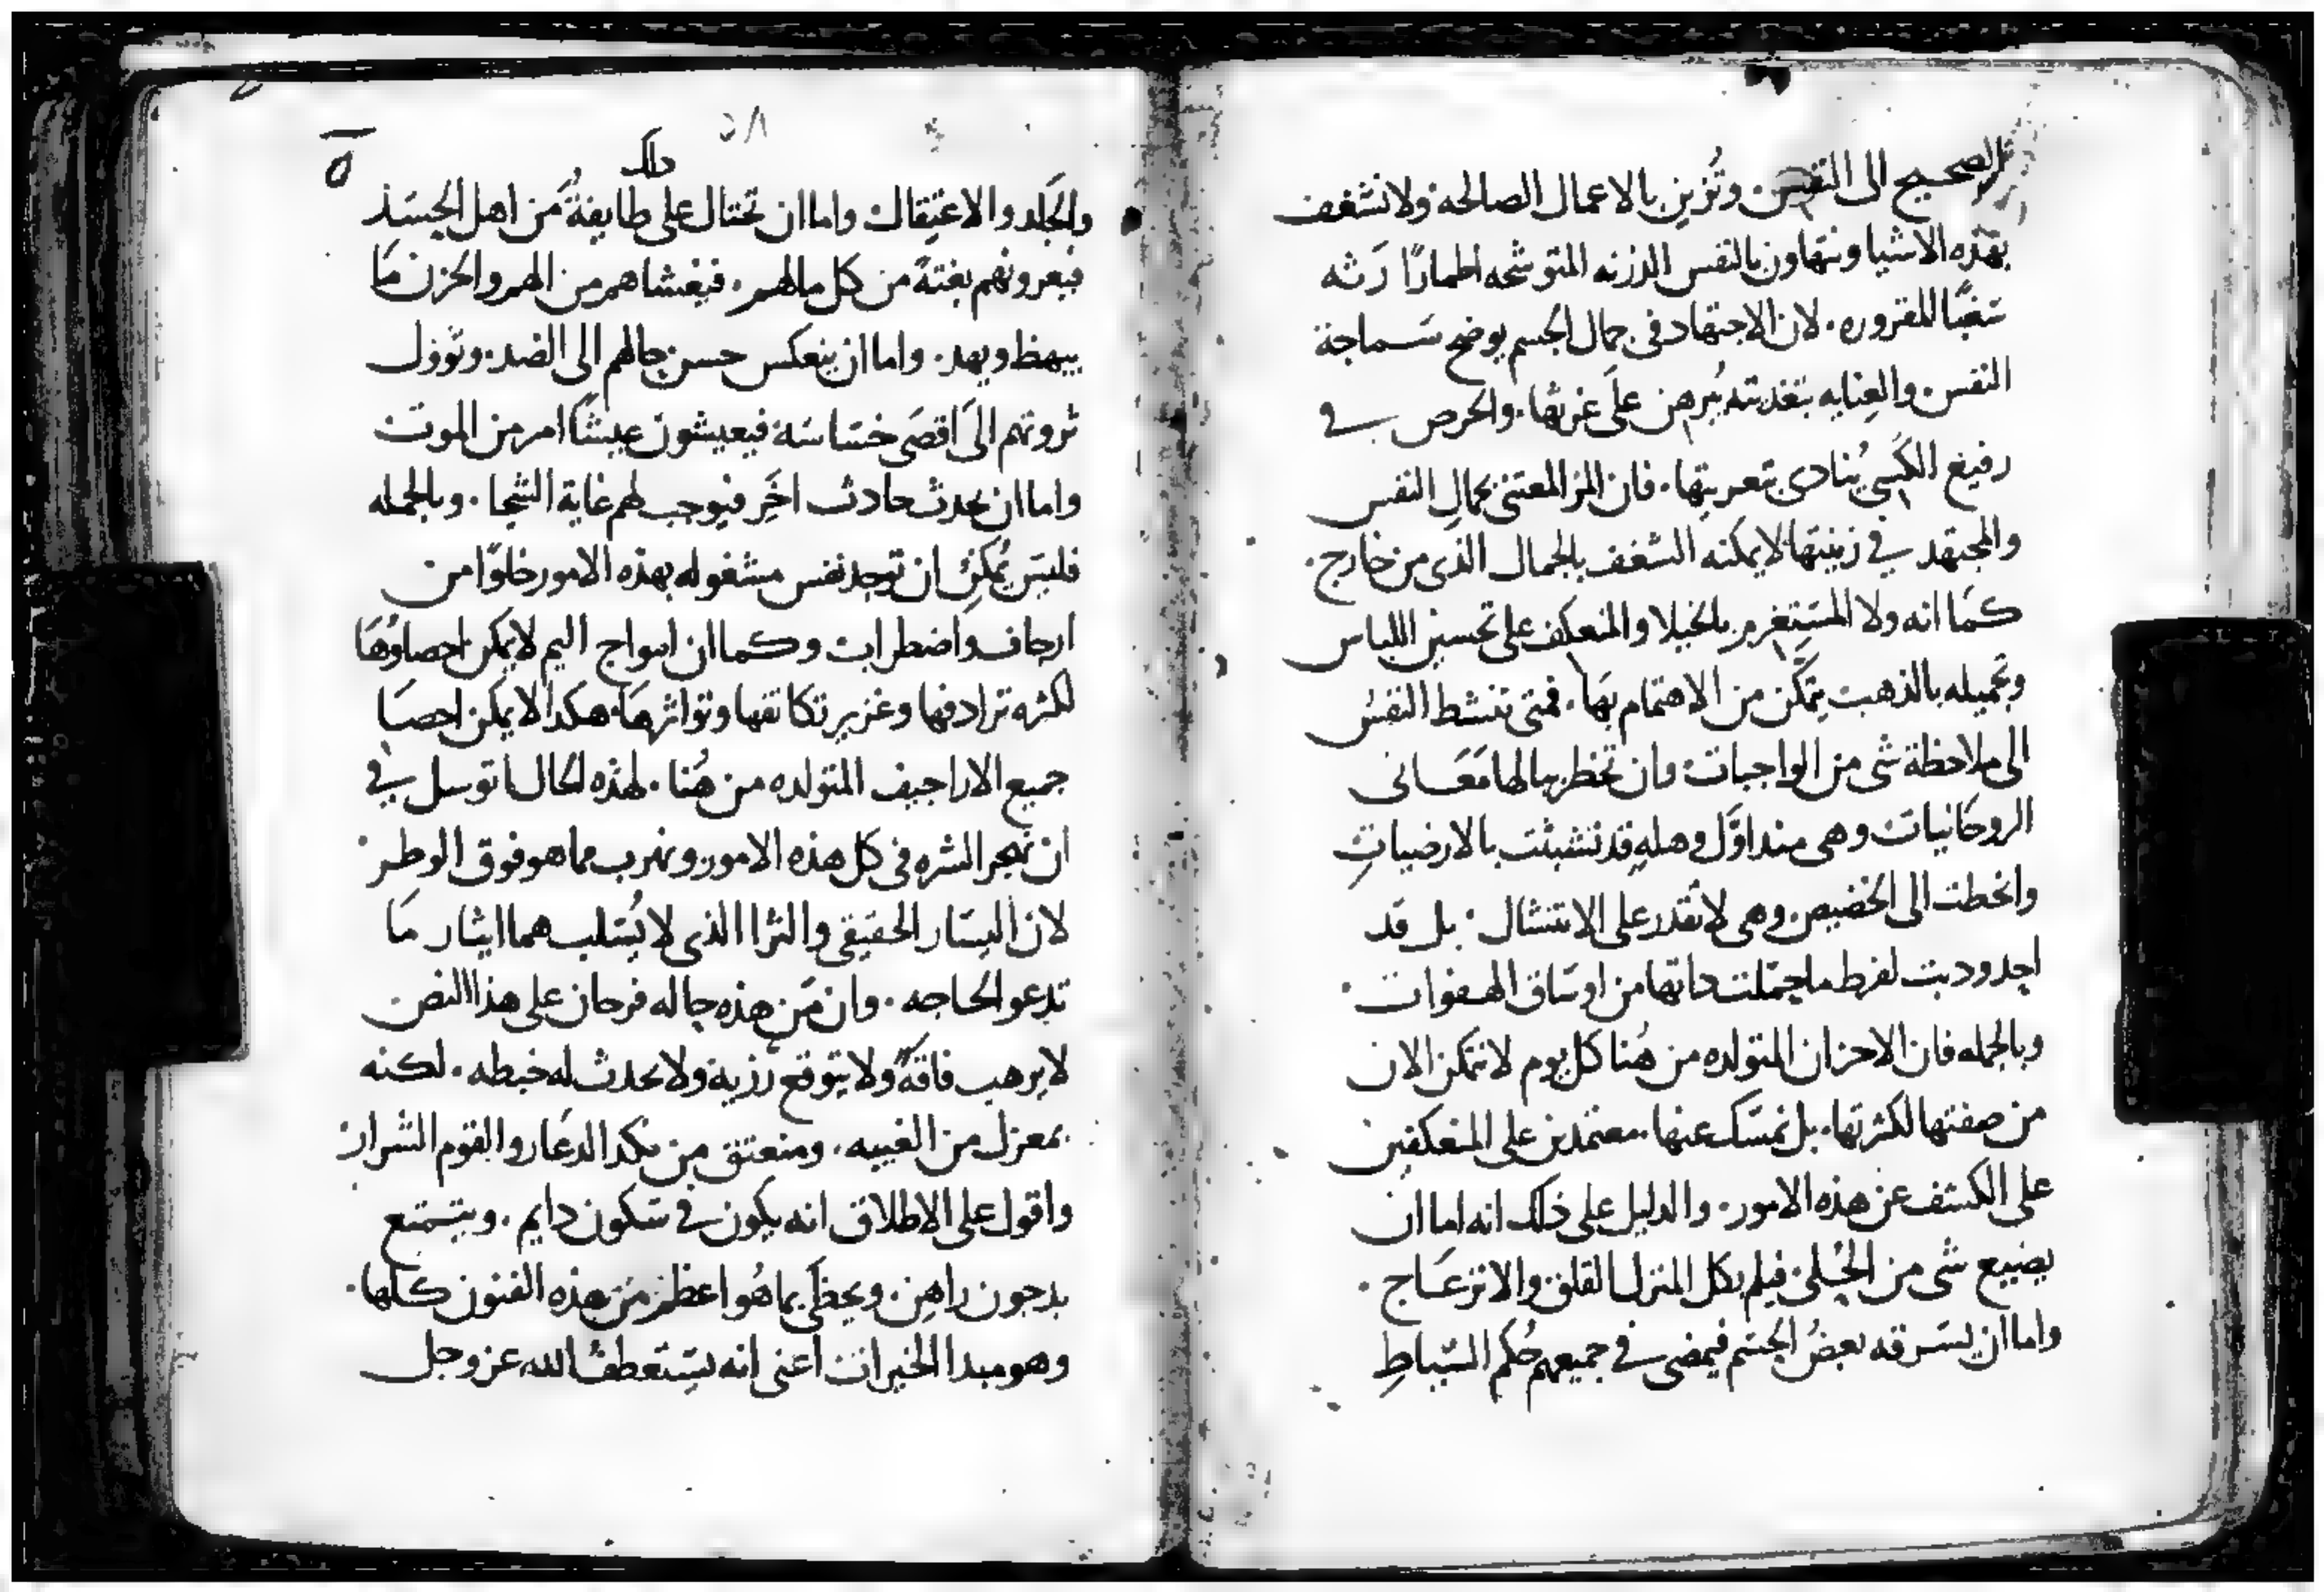 الصحيح الى النفس. وتُزين بالاعمال الصالحه ولا نشغف
بهذه الاشيا ونتهاون بالنفس الدرنه المتوشحه اطمارًا رَثه
للقروره. لان الاجتهاد فى جمال الجسم يوضح سَماجة
النفس. والعِنايه بتغديته يُبرهن علَى غرثها. والحرص في
رفيغ الكسِى يُنادى بتعريتها. فان المر المعتنى بجمالِ النفس
والمجتهد في زينتها لا يمكنه الشغف بالجمال الذى من خارج.
كمَا انه ولا المستغرم بالخيلا والمنعكف على تحسين اللباس
وتجميله بالذهب يتمكّن من الاهتمام بهَا. فمتى تنشط النفسُ
الى ملاحظة شى من الواجبات وان تخطر ببالها مَعَانى
الروحَانيات وهى منداوّل وهلهٍ قد تشبثت بالارضياتِ
وانحطت الى الحضيض. وهى لا تقدر على الانتشال. بل قد
احدودبت لفرط ما حمّلت داتها من اوسَاق الهفوات.
وبالجمله فان الاحزان المتولده من هُنا كل يوم لا نتمكن الان
من صفتها لكثرتها. بل نمسَك عنها. معتمدين على المنعكفين
على الكشف عن هذه الامور. والدليل على ذلك انه اما ان
يضيع شى من الحُلى فيلم بكل المنزل القلق والانزعَاج.
واما ان يسَرقه بعضُ الحشم فيمضى في جميعهم حُكم السّياطِ
٥٨
ه
والجَلد والاعتِقال واما ان تحتال على طايفةُ مَن اهل الحسَد
فيعرونهم بغتةً من كل مالهم. فيغشاهم من الهم والحزن مَا
يبهظ ويهد. واما ان ينعكس حسن حالهم الى الضد. وتوول
ثروتهم الَى اَقصَى خسَاسَة فيعيشون عيشًا امر من الموت
واما ان يحدث حادث اخَر فيوجب لهم غاية الشجا. وبالجمله
فليسَ يُمكِن ان توجد نفس مشغوله بهذه الامور خلوًا من
ارجاف واضطرابٍ وكما ان امواج اليم لا يمكن احصاوُهَا
لكثرة ترادفها وغزير تكاثفها وتواثرهَا. هكدا لا يمكن احصَا
جميع الاراجيف المتولده من هُنا. لهذه الحال اتوسل في
ان نهجر الشره فى كل هذه الامور ونهرب مما هو فوق الوطر.
لان اليسَار الحقيقى والثرا الذى لا يُسَلب هما ايثار مَا
تدعو الحاجه. وان مَن هذه حاله فرحان على هذا النص
لا يرهب فاقهً ولا يتوقع رزية ولا يحدث له خبطه. لكنه
بمعزل من الغيبه. ومنعتق من نكد الدعَار والقوم الشرار
واقول على الاطلاق انه يكون في سَكون دايم. ويتمتع
بدجون راهِن. ويحظَى بما هُو اعظم من هذه الفنون كلها.
وهو مبدا الخيرات اعنى انه يسَتعطف الله عز وجل